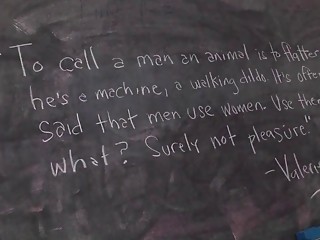 "To call a man an animal is to flatter
he's a machine, a walking dildo. It's often
said that men use women. Use them
what? Surely not pleasure."
-Valerie